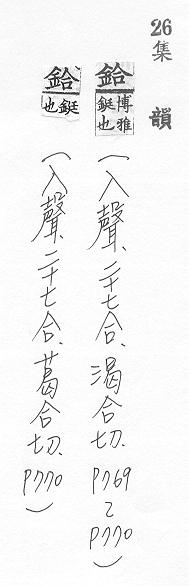 26集 韻
鉿 博雅鋌也 (入聲、二十七合、渴合切. P769 ~ P770)
鉿 鋌也 (入聲、二十七合、葛合切. P770)